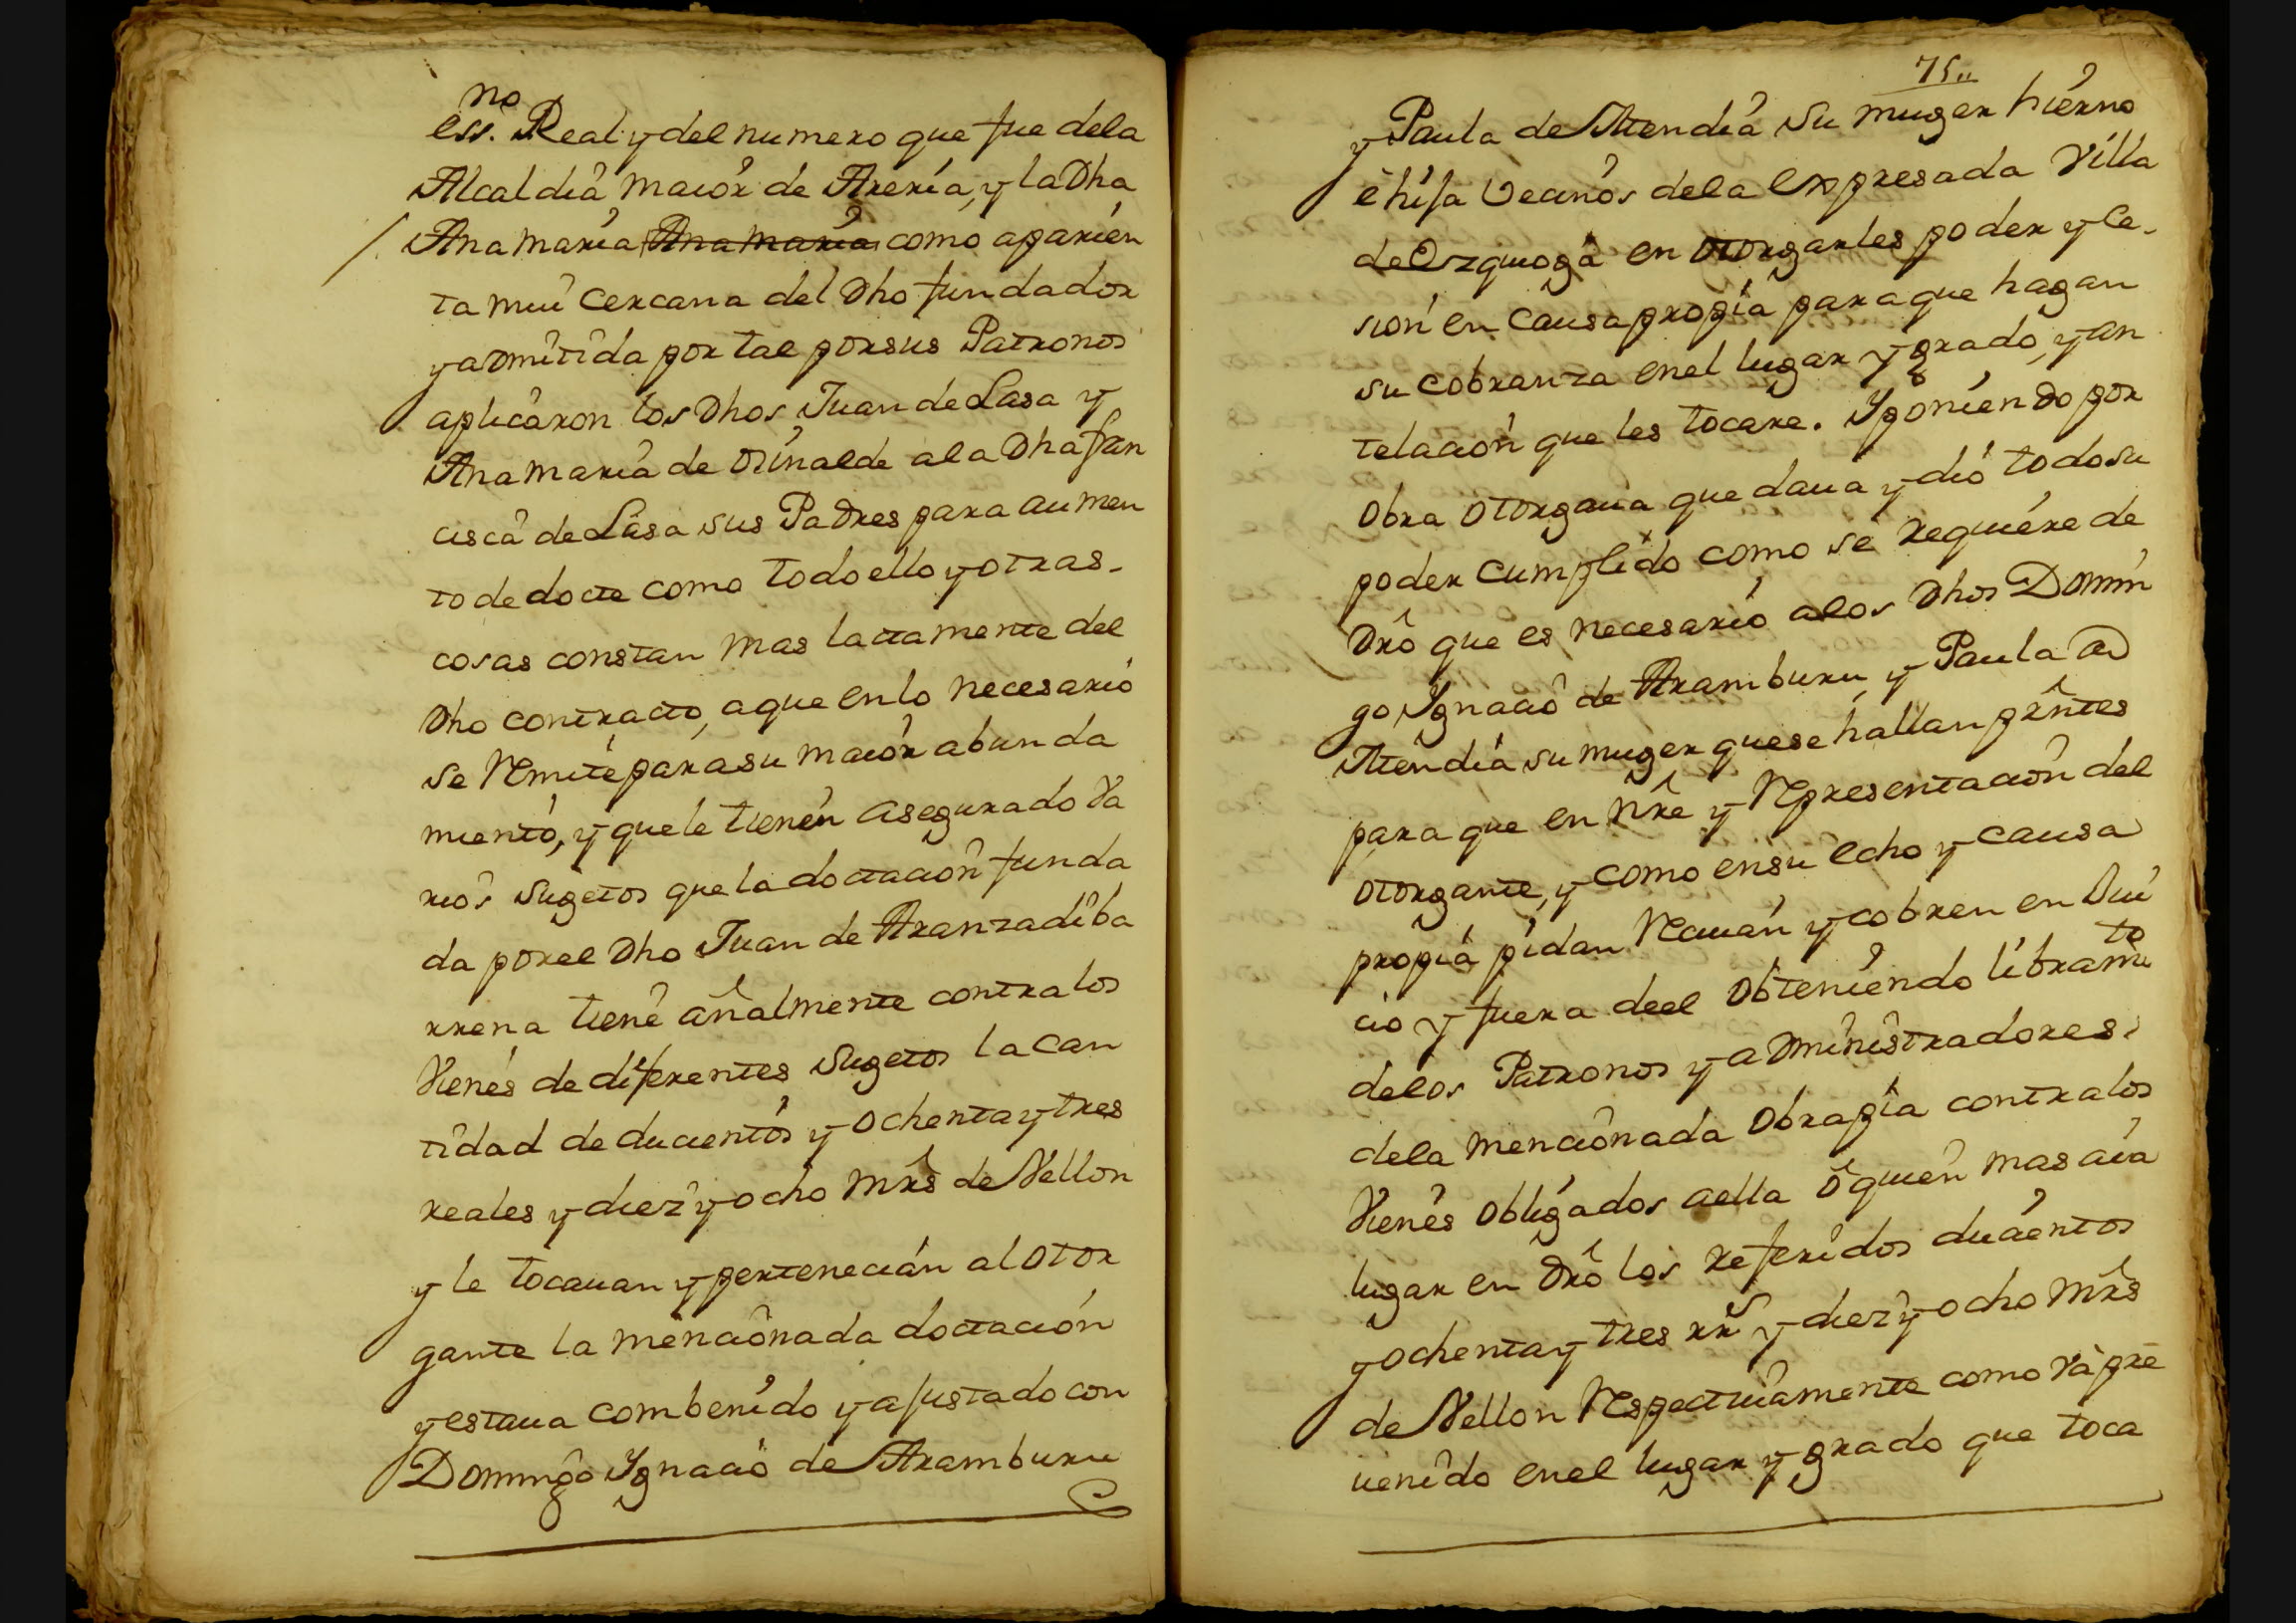 essno. Real y del numero que fue dela
Alcaldia maior de Areria, y la Dha
Ana maria Ana maria como aparien
ta mui cercana del Dho fundador
y admitida por tal por sus Patronos
aplicaron los Dhos Juan de Lasa y
Ana maria de Oinalde ala Dha fran
cisca de Lasa sus Padres para aumen
to de docte como todo ello y otras
cosas constan mas lactamente del
Dho contracto, a que en lo necesario
se Remite para su maior abunda
miento, y que le tienen asegurado Va
rios sugetos que la doctacion funda
da por el Dho Juan de Aranzadiba
rrena tiene añalmente contra los
Vienes de diferentes sugetos la can
tidad de ducientos y ochenta y tres
reales y diez y ocho mrs de Vellon
y le tocauan y pertenecian al otor
gante la mencionada doctacion
y estaua combenido y ajustado con
Domingo Ygnacio de Aramburu
75
y Paula de Atendia su muger hierno
e hija Vecinos dela expresada Villa
de Ezquioga en otorgarles poder y ce-
sion en Causa propia para que hagan
su cobranza en el lugar y grado, y an
telacion que les tocare. Y poniendo por
obra otorgaua que daua y dio todo su
poder cumplido como se requiere de
Dro que es necesario alos Dhos Domin
go Ygnacio de Aramburu, y Paula de
Atendia su muger que se hallan prntes
para que en nre y Representacion del
otorgante, y como en su echo y causa
propia pidan Reciuan y cobren en Jui
cio y fuera de el obteniendo libramto
delos Patronos y administradores
dela mencionada obrapia contra los
Vienes obligados a ella o quien mas aia
lugar en Dro los referidos ducientos
y ochenta y tres rrs y diez y ocho mrs
de Vellon Respectiuamente como va pre
uenido en el lugar y grado que toca